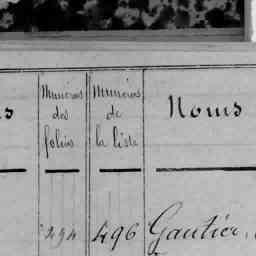 Numéros Numéros
s des de Noms
folios la liste
294 496 Gautier,